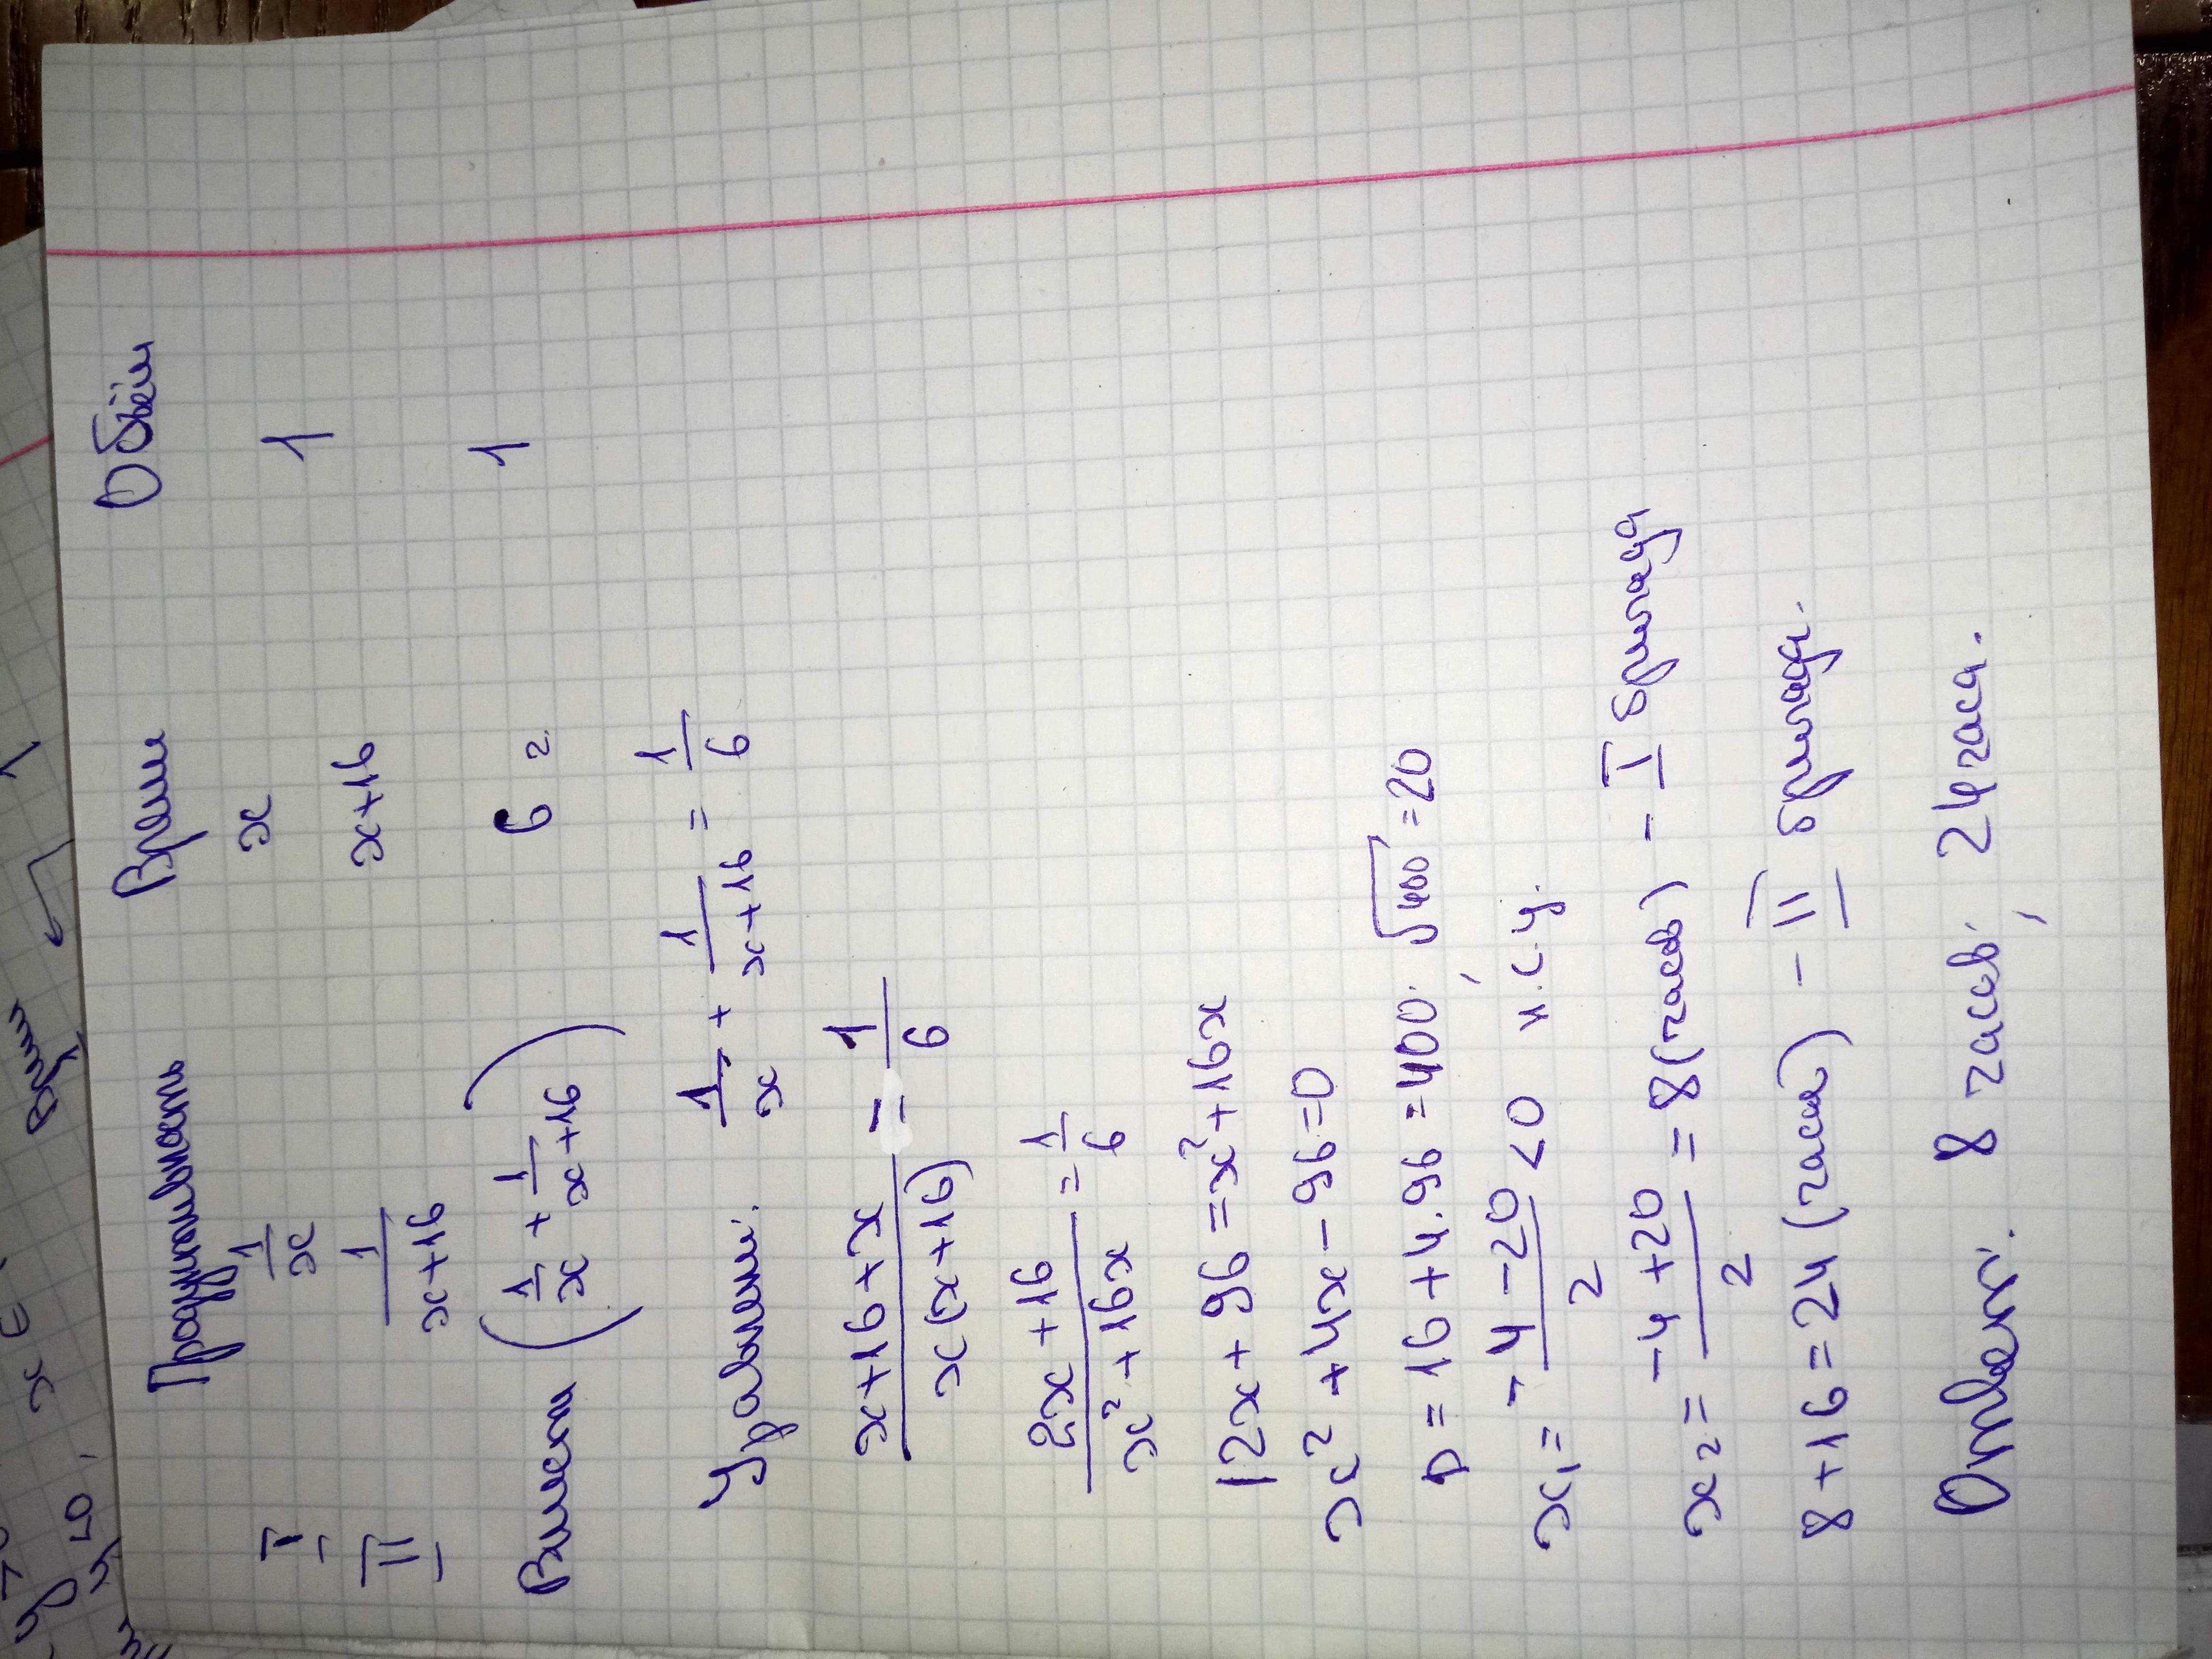 Продуктивность Время Объём
I 1/x x 1
II 1/(x+16) x+16
Вместе (1/x + 1/(x+16)) 6 ч 1
Уравнение: 1/x + 1/(x+16) = 1/6
(x+16+x)/(x(x+16)) = 1/6
(2x+16)/(x²+16x) = 1/6
12x+96=x²+16x
x²+4x-96=0
D=16+4·96=400; √400=20
x₁= (-4-20)/2 <0 н.с.у.
x₂= (-4+20)/2 = 8 (часов) - I бригада
8+16=24 (часа) - II бригада.
Ответ: 8 часов; 24 часа.